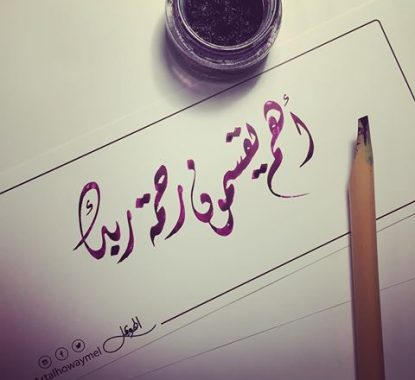 أهم يقسمون رحمة ربك
الهويمل
artalhowaymel